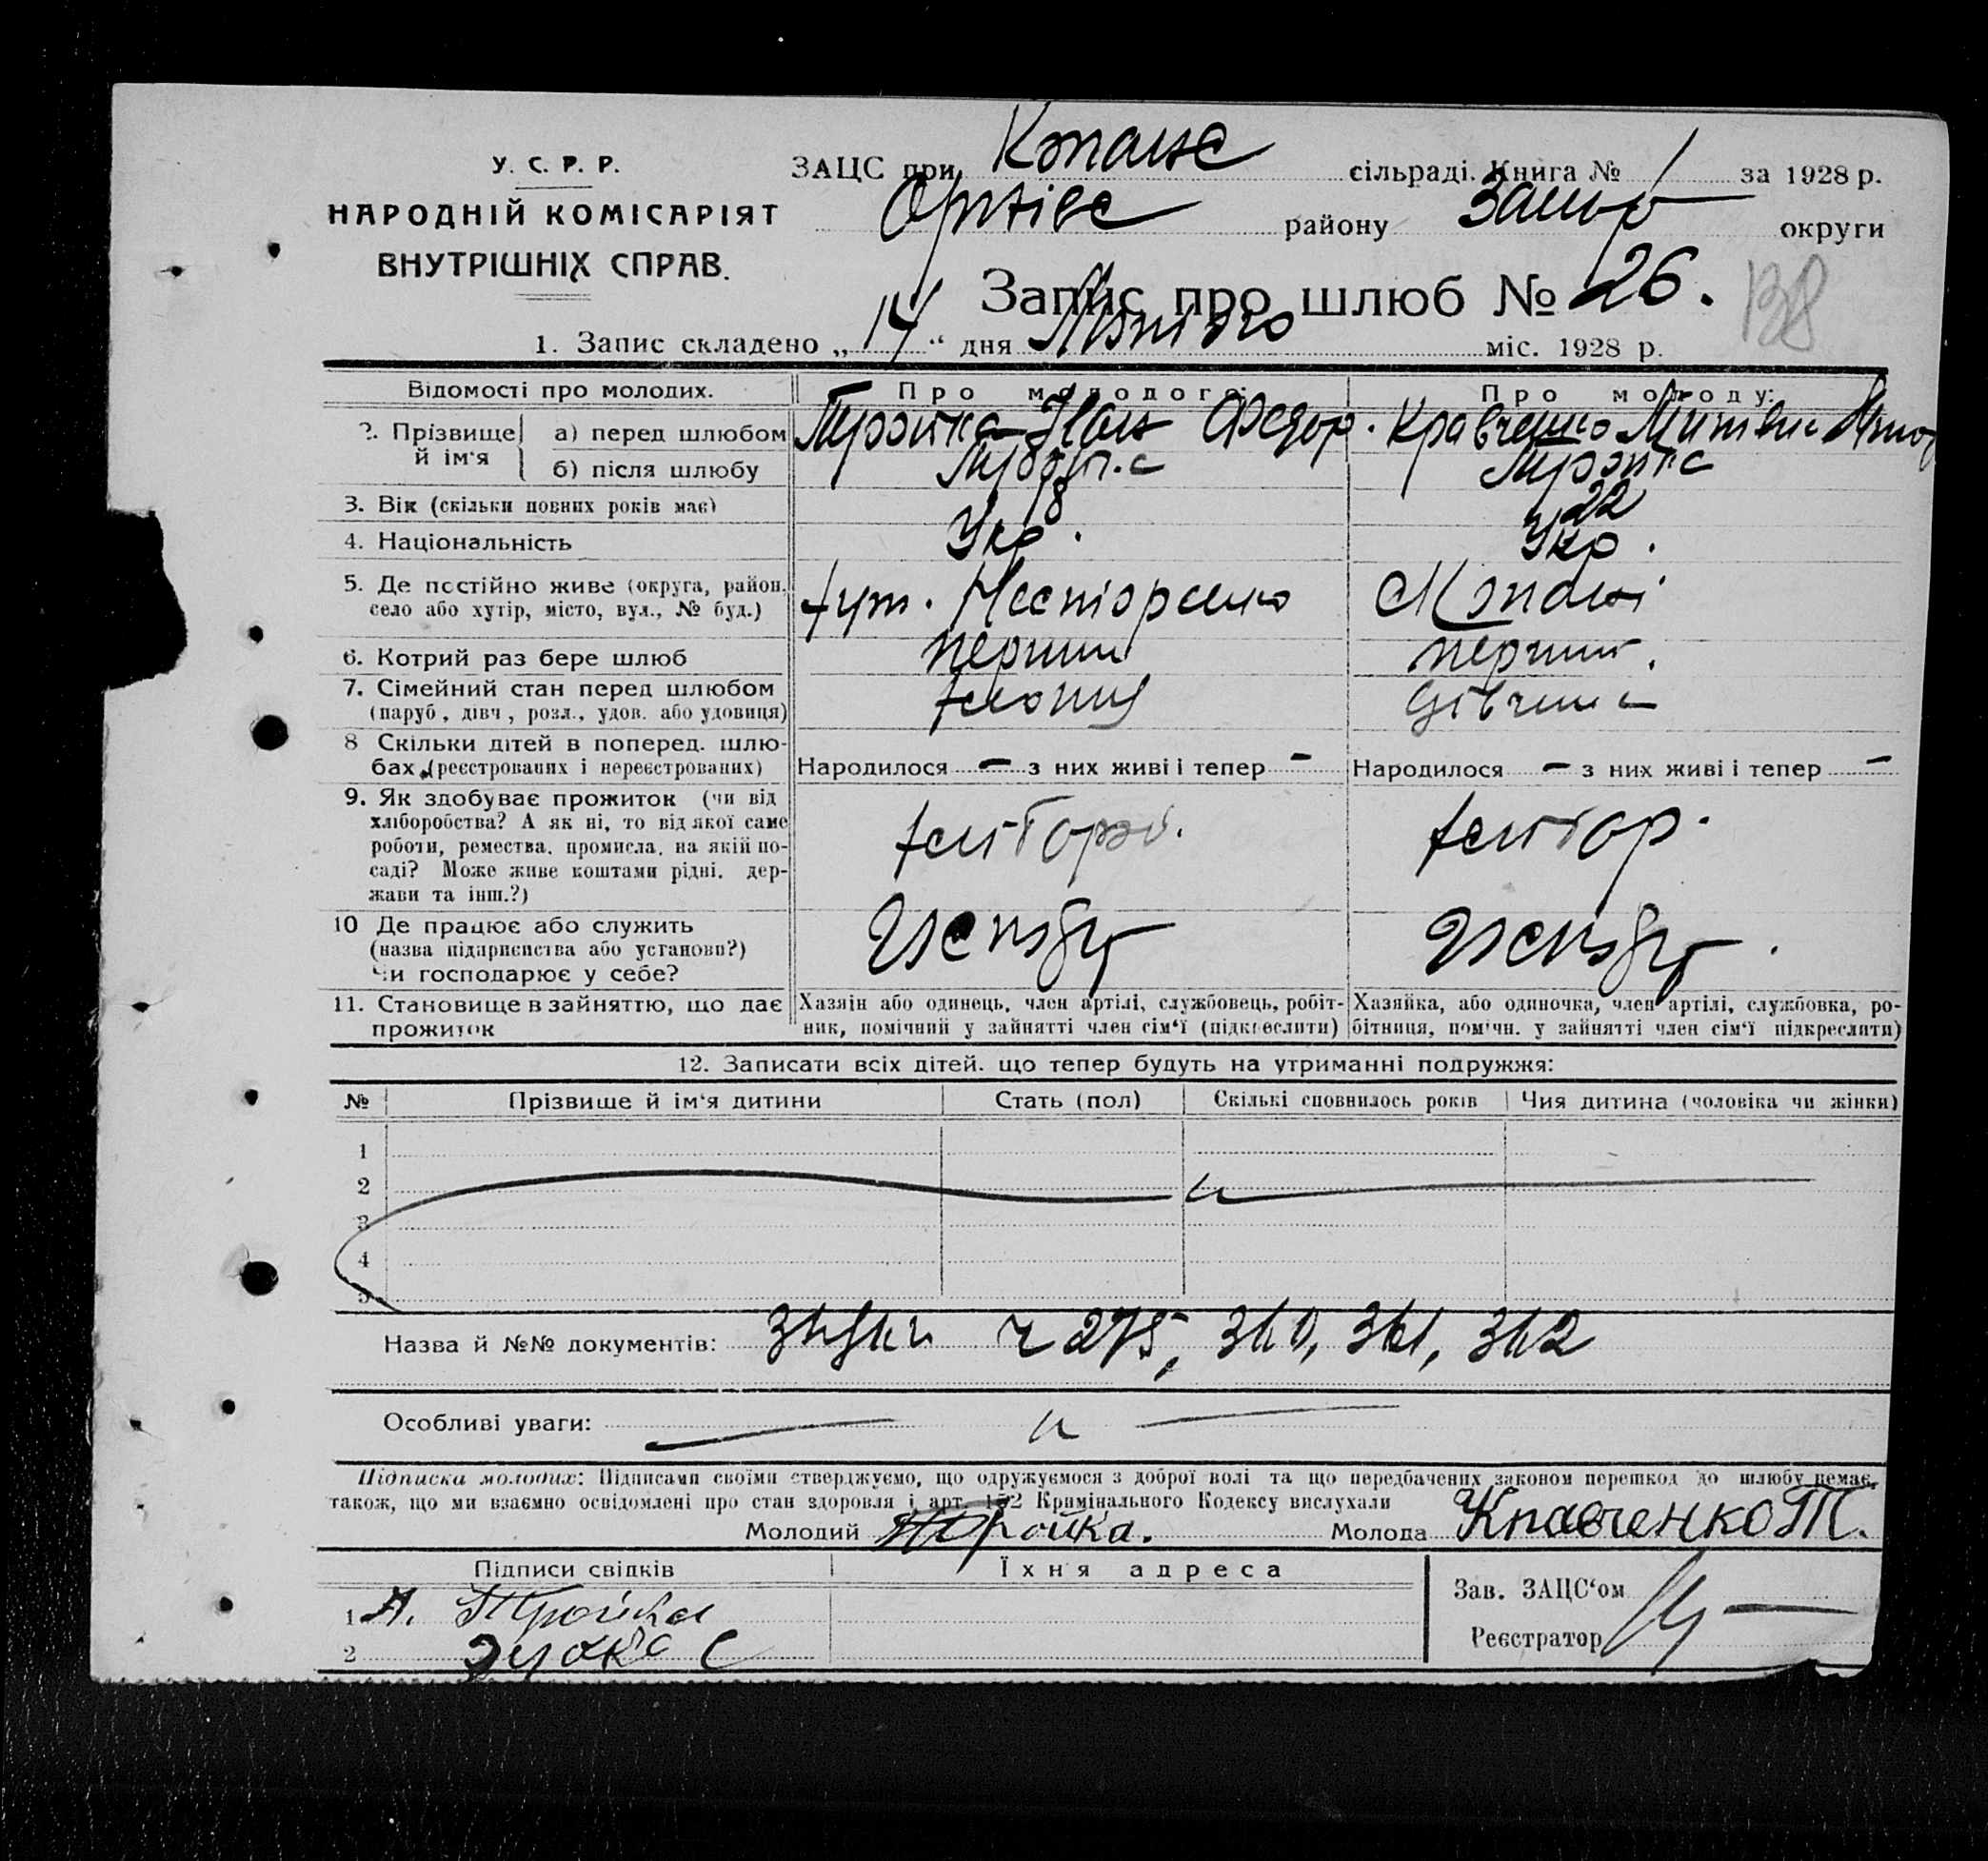 У. С. Р. Р.
НАРОДНІЙ КОМІСАРІЯТ
ВНУТРІШНІХ СПРАВ.
ЗАЦС при сільраді. Книга № 1 за 1928 р.
району округи
Запис про шлюб № 26.
138
1. Запис складено „14“ дня Лютого міс. 1928 р.
Відомості про молодих. Про молодого: Про молоду:
2. Прізвище й ім'я
а) перед шлюбом Тройка Іван Федор. Кравченко
б) після шлюбу Тройка Тройка
3. Вік (скільки повних років має) 18 22
4. Національність Укр. Укр.
5. Де постійно живе (округа, район, село або хутір, місто, вул., № буд.) хут.
6. Котрий раз бере шлюб перший перший.
7. Сімейний стан перед шлюбом (паруб, дівч, розл., удов. або удовиця) хлопец дівчина
8 Скільки дітей в поперед. шлюбах (реєстрованих і нереєстрованих) Народилося — з них живі і тепер — Народилося — з них живі і тепер —
9. Як здобуває прожиток (чи від хліборобства? А як ні, то від якої саме роботи, ремества, промисла, на якій посаді? Може живе коштами рідні, держави та інш.?)
10 Де працює або служить (назва підприємства або установи?) Чи господарює у себе?
11. Становище в зайняттю, що дає прожиток
Хазяїн або одинець, член артілі, службовець, робітник, помічний у зайнятті член сім'ї (підкреслити)
Хазяйка, або одиночка, член артілі, службовка, робітниця, помічн. у зайнятті член сім'ї підкреслити)
12. Записати всіх дітей, що тепер будуть на утриманні подружжя:
№ Прізвище й ім'я дитини Стать (пол) Скількі сповнилось років Чия дитина (чоловіка чи жінки)
1
2
3
4
5
Назва й №№ документів: 275, 360, 361, 362
Особливі уваги:
Підписка молодих: Підписами своїми стверджуємо, що одружуємося з доброї волі та що передбачених законом перешкод до шлюбу немає,
також, що ми взаємно освідомлені про стан здоровля і арт. 152 Кримінального Кодексу вислухали
Молодий Тройка. Молода Кравченко Т.
Підписи свідків Їхня адреса
1 А. Тройка
2
Зав. ЗАЦС'ом
Реєстратор